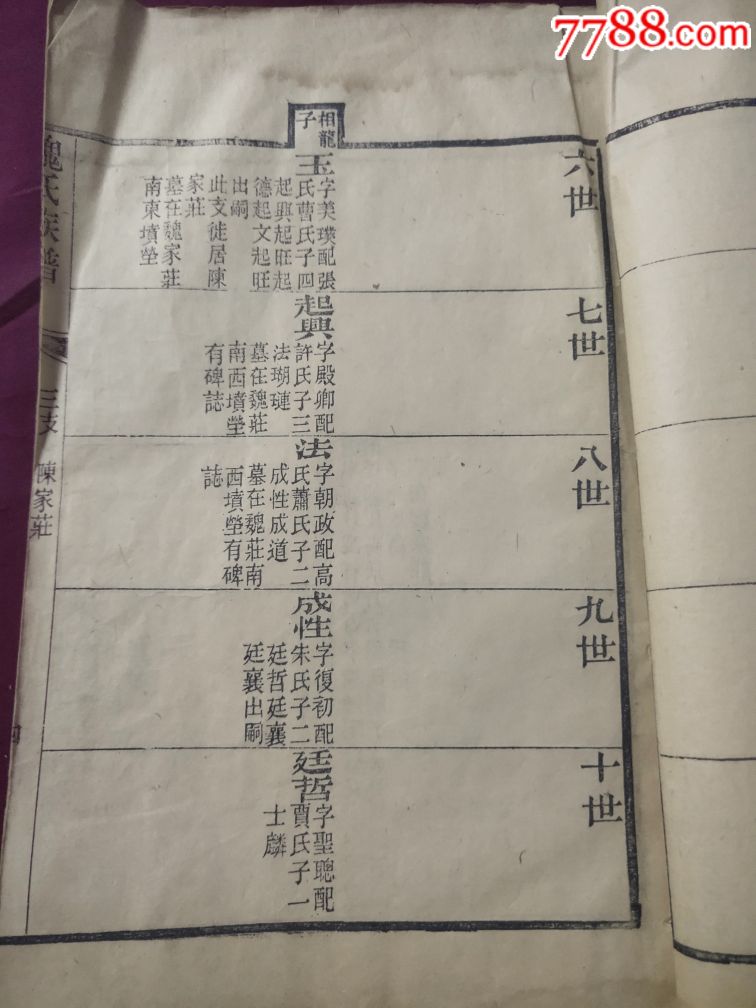 7788.com
六世
相龍
子
玉
字美璞配張
氏曹氏子四
起興起旺起
德起文起旺
出嗣
此支徙居陳
家莊
墓在魏家莊
南東墳塋
七世
起興
字殿卿配
許氏子三
法瑚璉
墓在魏莊
南西墳塋
有碑誌
八世
法
字朝政配高
氏蕭氏子二
成性成道
墓在魏莊南
西墳塋有碑
誌
九世
成性
字復初配
朱氏子二
廷哲廷襄
廷襄出嗣
十世
廷哲
字聖聰配
賈氏子一
士麟
魏氏族譜
三支 陳家莊